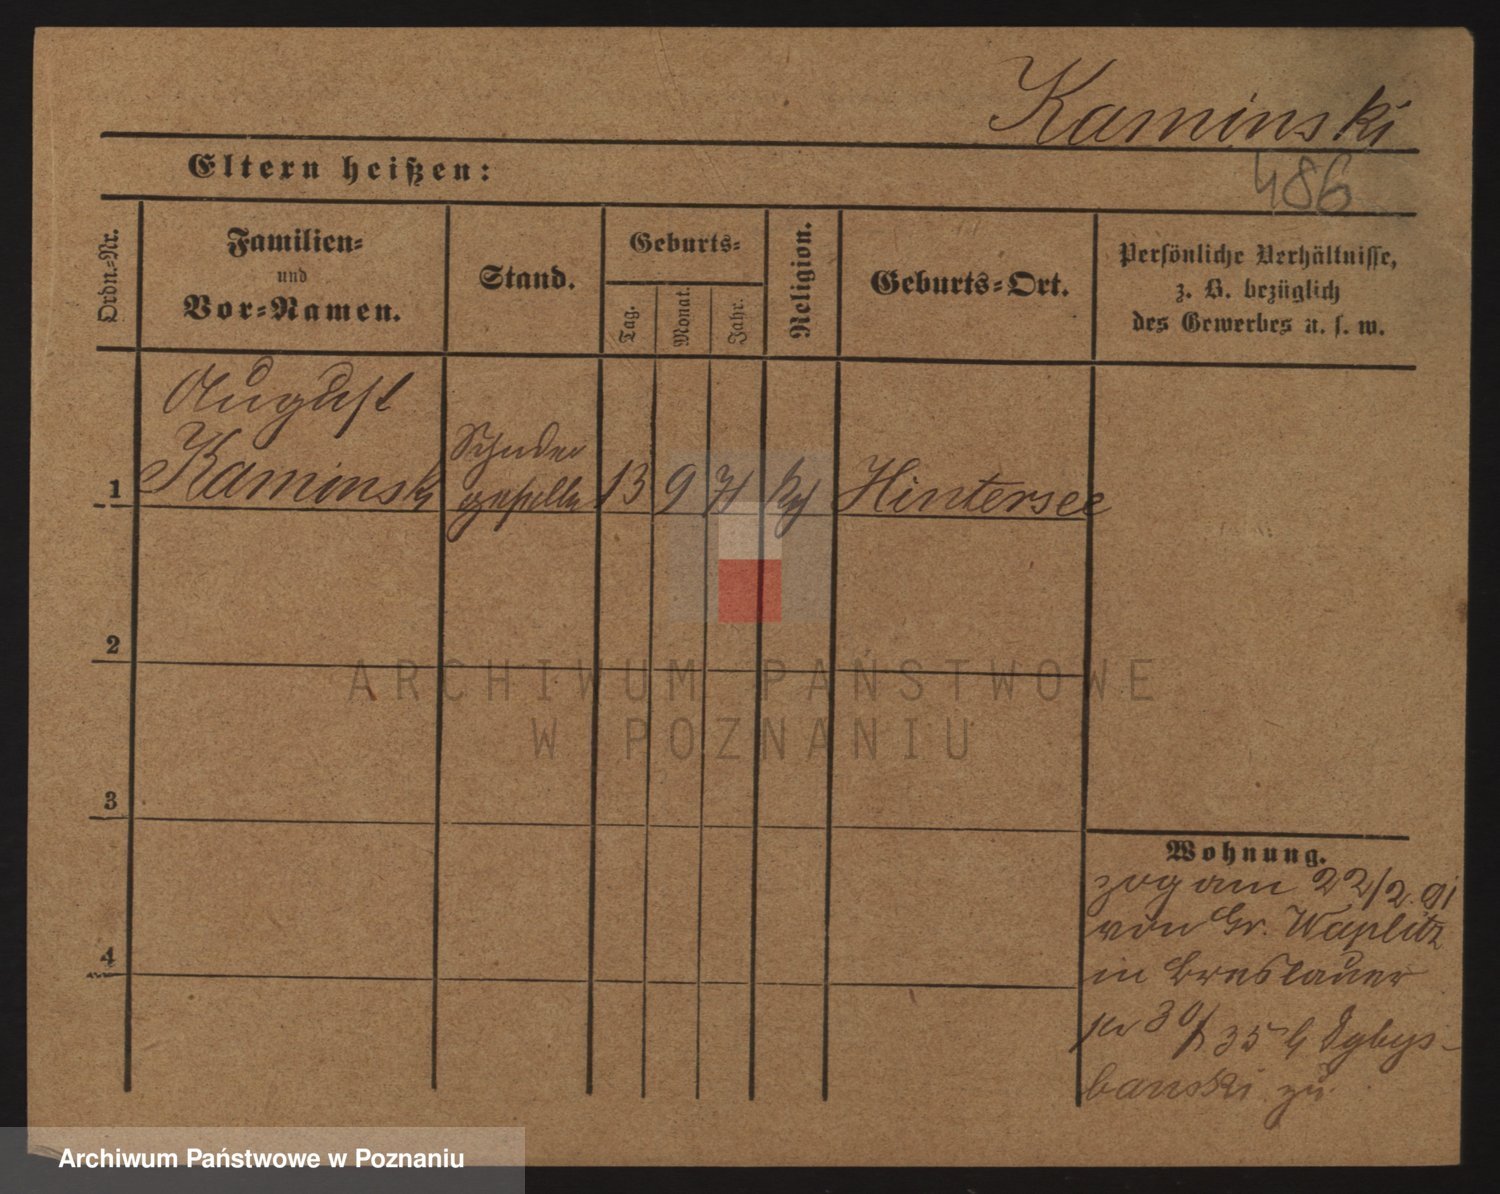 Kaminski
486
Eltern heißen:
Ordn.-Nr.
Familien-
und
Vor-Namen.
Stand.
Geburts-
Tag.
Monat.
Jahr.
Religion.
Geburts-Ort.
Persönliche Verhältnisse,
z. B. bezüglich
des Gewerbes u. s. w.
August
1 Kaminski
geselle 13 9 71 Hintersee
2
3
4
Wohnung.
zog am 22/2. 91
von Gr. Waplitz
in Breslauer
35 b
banski zu
ARCHIWUM PAŃSTWOWE
W POZNANIU
Archiwum Państwowe w Poznaniu